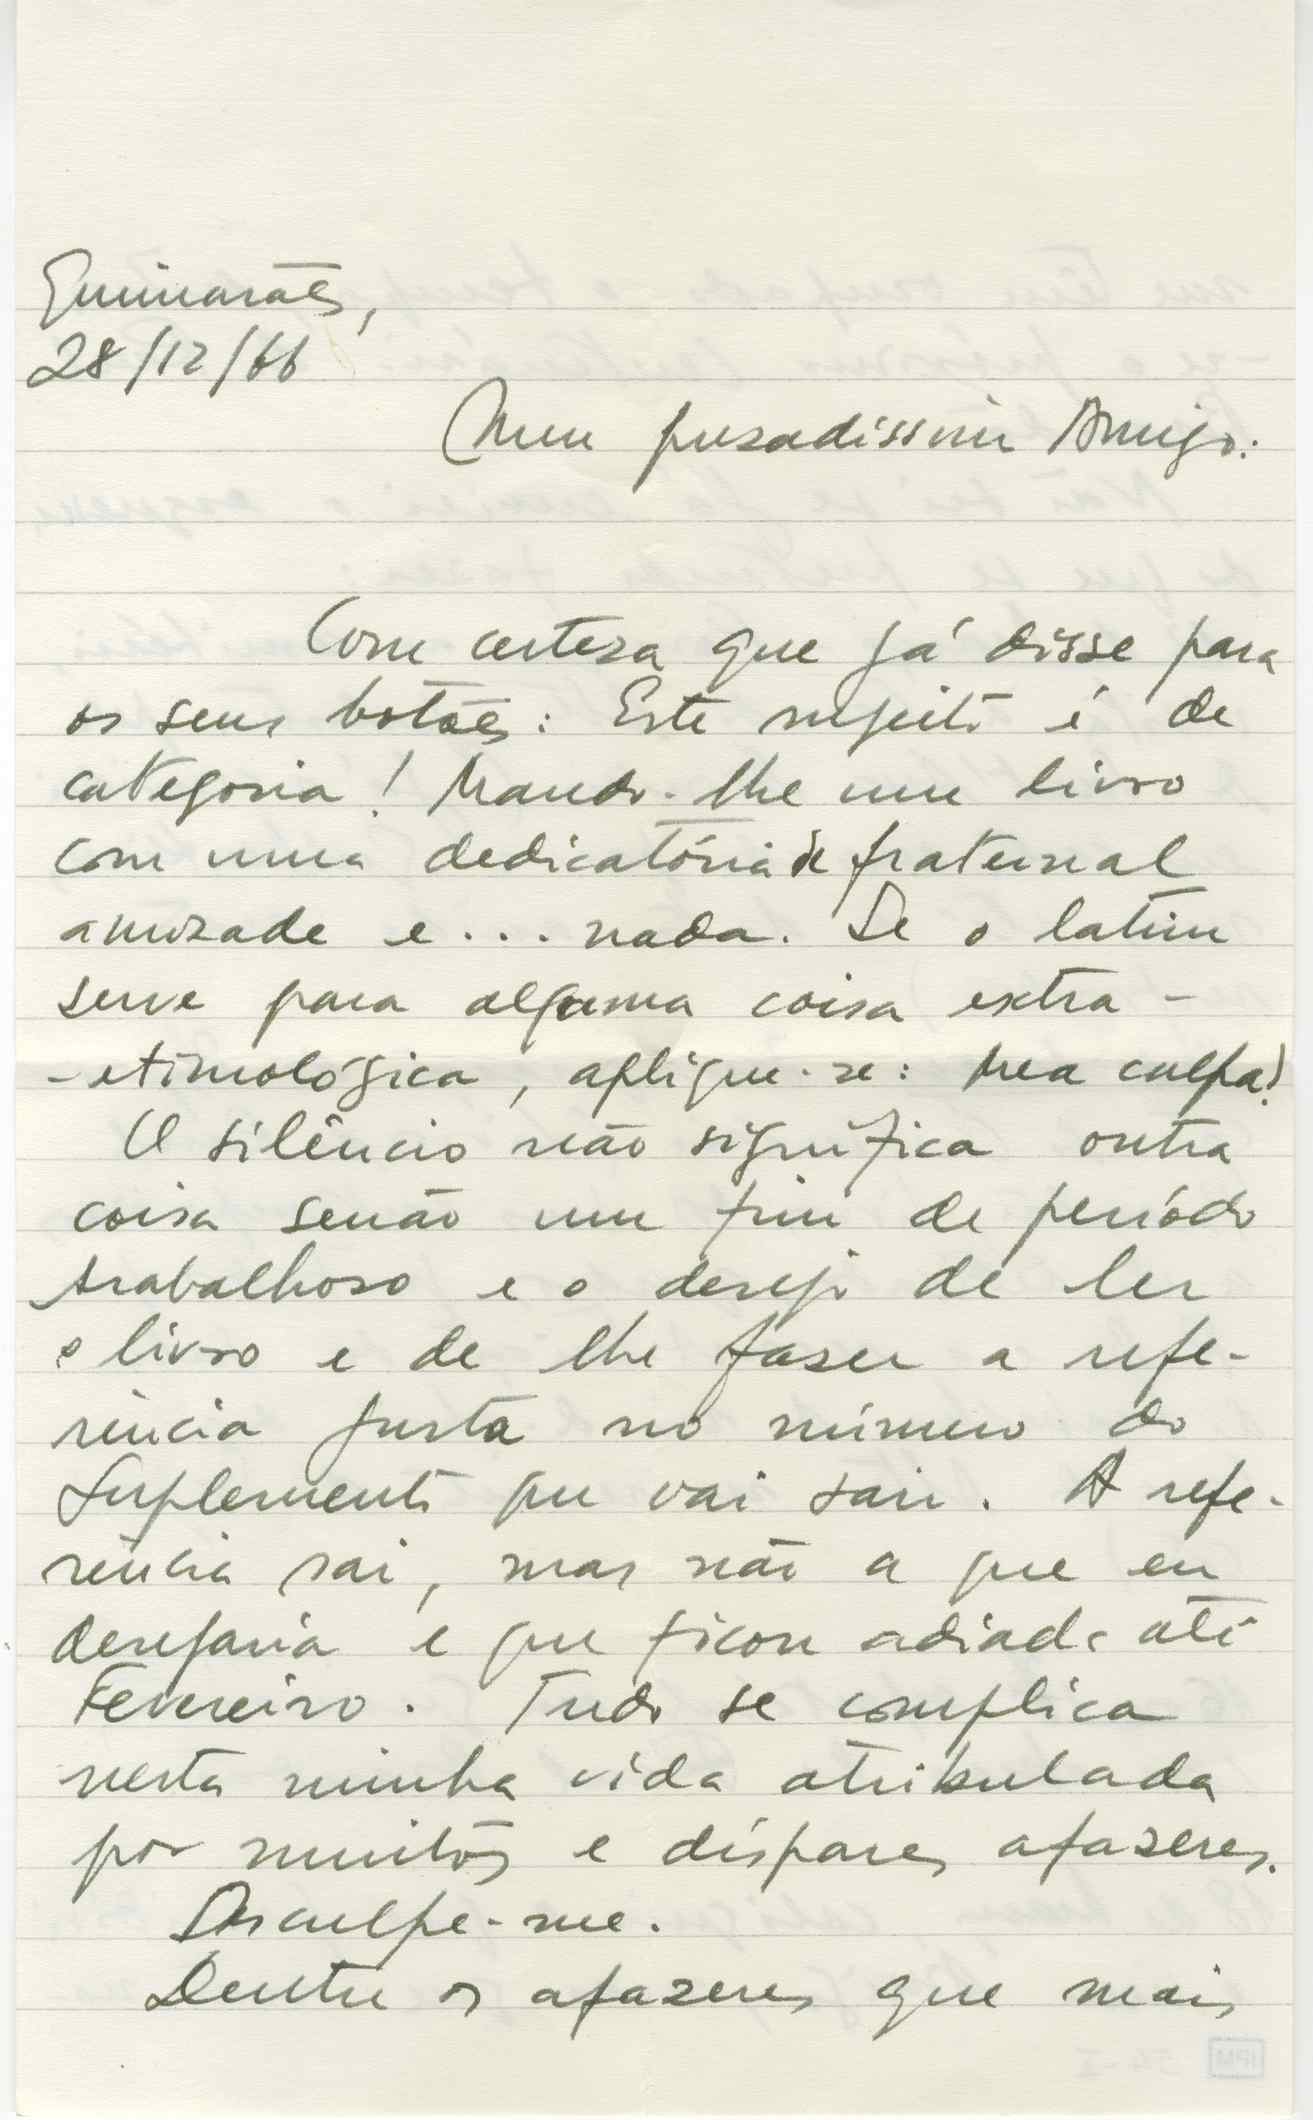 Guimarães,
28/12/66
Meu prezadíssimo Amigo:
Com certeza que já disse para
os seus botões: Este sujeito é de
categoria! Mando-lhe um livro
com uma dedicatória de fraternal
amizade e... nada. Se o latim
serve para alguma coisa extra-
-etimológica, aplique-se: mea culpa!
O silêncio não significa outra
coisa senão um fim de período
trabalhoso e o desejo de ler
o livro e de lhe fazer a refe-
rência justa no número do
Suplemento que vai sair. A refe-
rência sai, mas não a que eu
desejaria e que ficou adiada até
Fevereiro. Tudo se complica
nesta minha vida atribulada
por muitos e díspares afazeres.
Desculpe-me.
Dentre os afazeres que mais